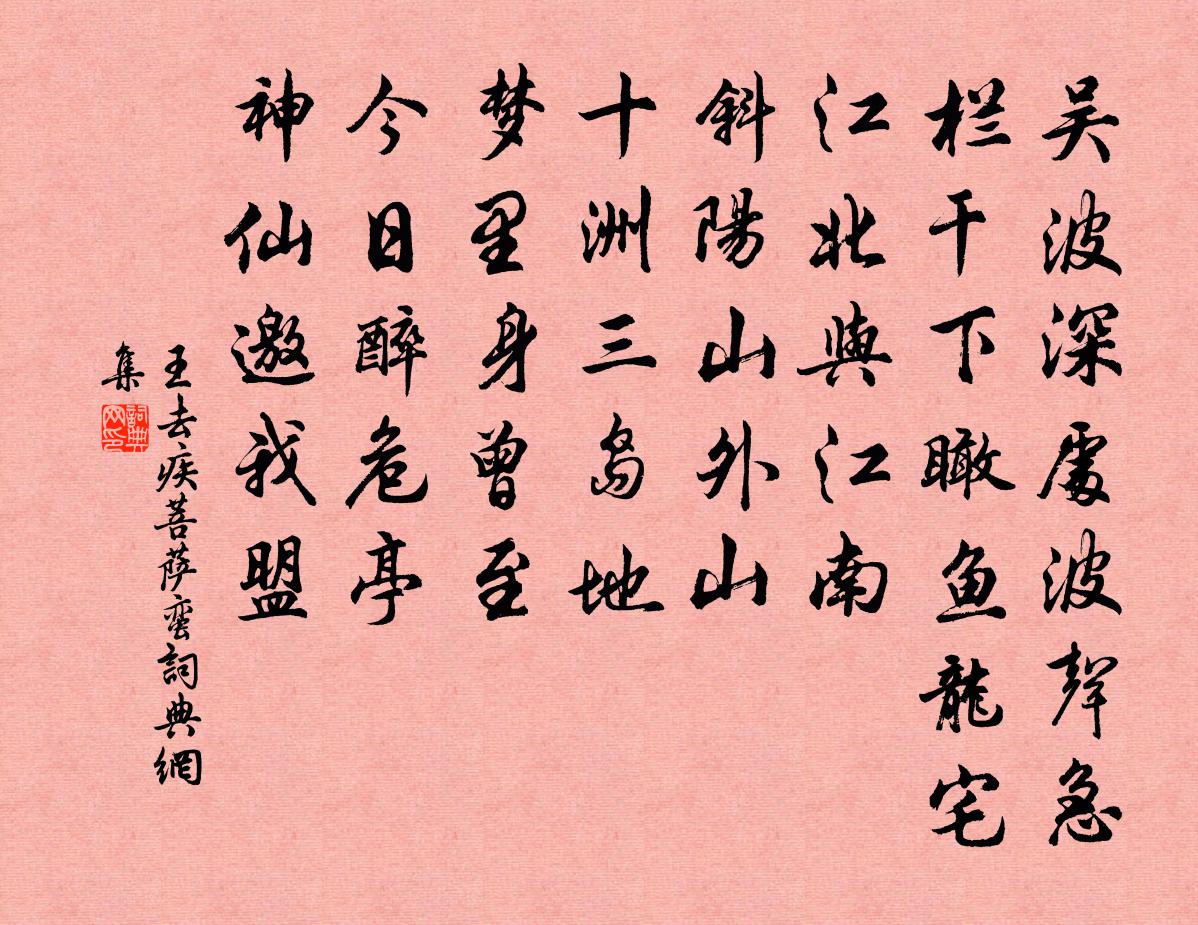 吴波深處波聲急
栏干下瞰鱼龍宅
江北與江南
斜陽山外山
十洲三岛地
梦里身曾至
今日醉危亭
神仙邀我盟
王去疾菩萨蛮詞典網
集
詞典網印